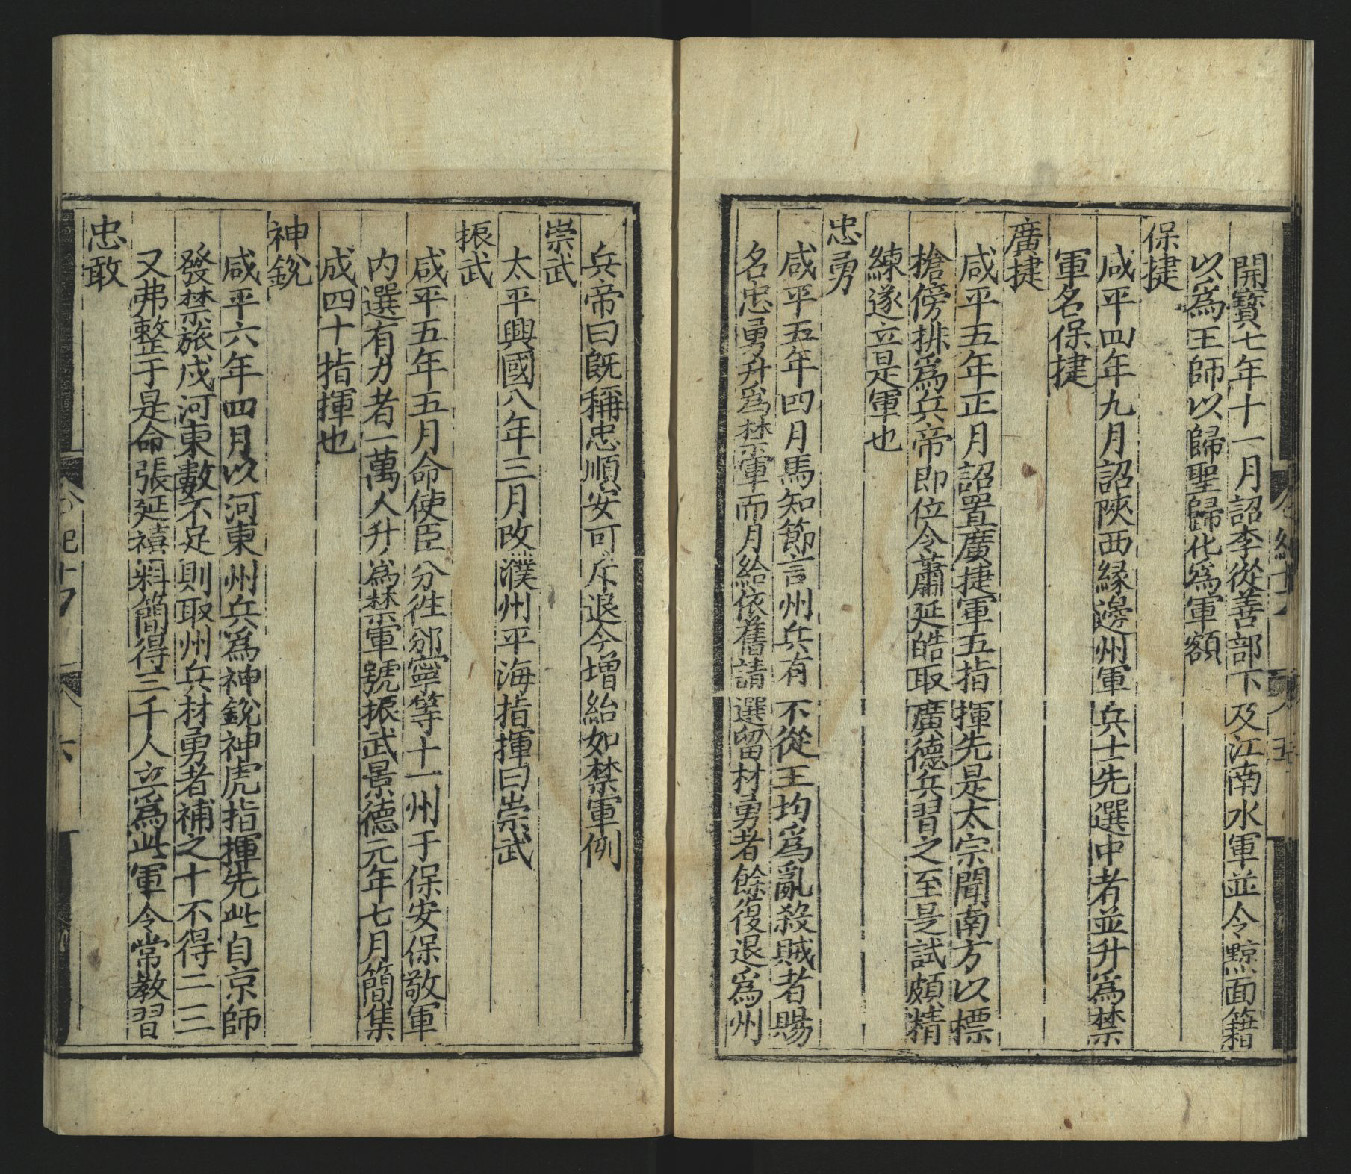 開寶七年十一月詔李從善部下及江南水軍並令黥面籍
以爲王師以歸聖歸化爲軍額
保捷
咸平四年九月詔陝西緣邊州軍兵士先選中者並升爲禁
軍名保捷
廣捷
咸平五年正月詔置廣捷軍五指揮先是太宗聞南方以摽
搶傍排爲兵帝即位令蕭延皓取廣德兵習之至是試頗精
練遂立是軍也
忠勇
咸平五年四月馬知節言州兵有不從王均爲亂殺賊者賜
名忠勇升爲禁軍而月給依舊請選留材勇者餘復退爲州
兵帝曰旣稱忠順安可斥退今增給如禁軍例
崇武
太平興國八年三月改濮州平海指揮曰崇武
振武
咸平五年五月命使臣分徃邠寧等十一州于保安保敬軍
内選有力者一萬人升爲禁軍號振武景德元年七月簡集
成四十指揮也
神銳
咸平六年四月以河東州兵爲神銳神虎指揮先此自京師
發禁旅戍河東數不足則取州兵材勇者補之十不得二三
又弗整于是命張延禧料簡得三千人立爲此軍令常教習
忠敢